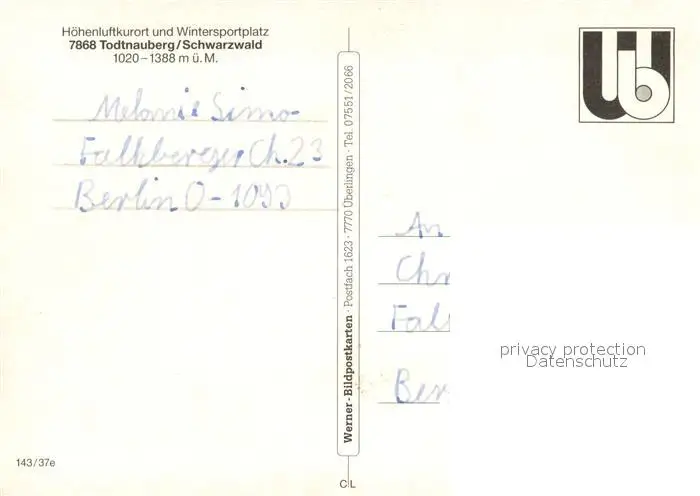 Höhenluftkurort und Wintersportplatz
7868 Todtnauberg/Schwarzwald
1020–1388 m ü. M.
Melanie Simo
Falkberger Ch. 23
Berlin O-1093
Werner-Bildpostkarten · Postfach 1623 · 7770 Überlingen · Tel. 07551/2066
An
Chr
Fal
Ber
privacy protection
Datenschutz
143/37e
CL